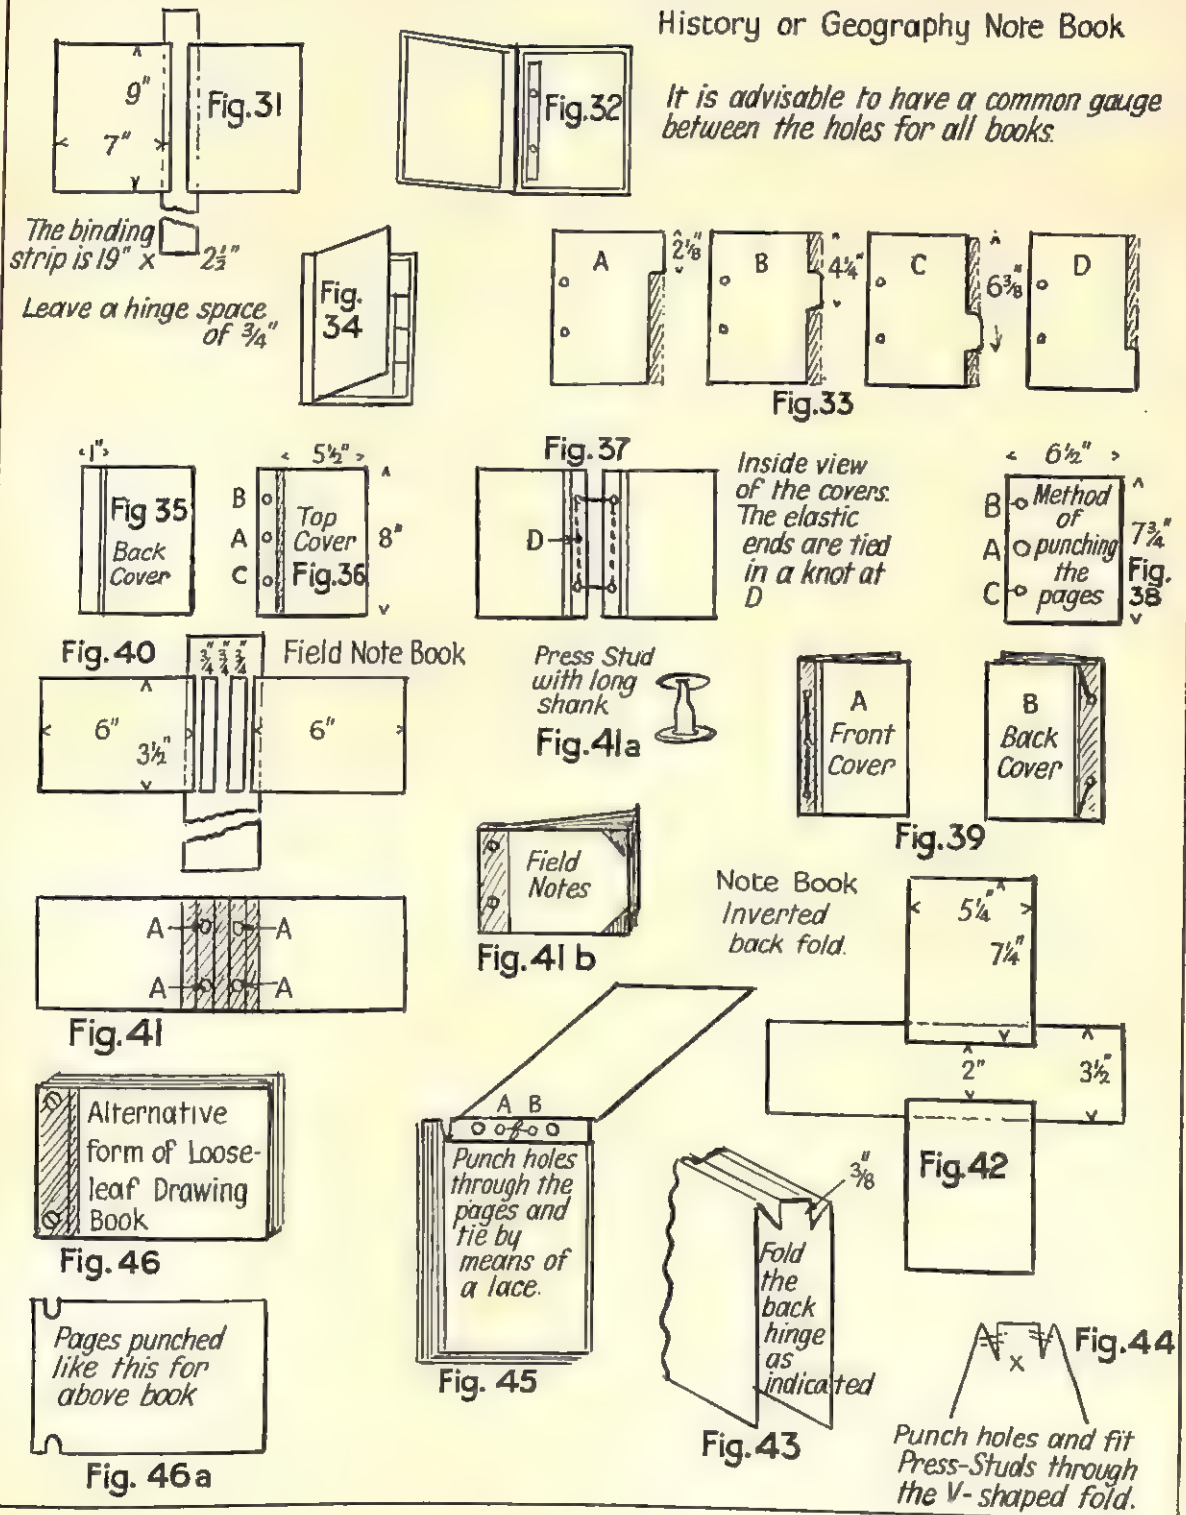 History or Geography Note Book
It is advisable to have a common gauge
between the holes for all books.
9"
7"
Fig.31
Fig.32
The binding
strip is 19" x 2½"
Leave a hinge space
of ¾"
Fig.
34
A
2⅛"
B
4¼"
C
6⅜"
D
Fig.33
1"
Fig 35
Back
Cover
5½"
B
A
C
Top
Cover
Fig.36
8"
Fig.37
D
Inside view
of the covers.
The elastic
ends are tied
in a knot at
D
6½"
B
A
C
Method
of
punching
the
pages
7¾"
Fig.
38
Fig.40
¾" ¾" ¾"
Field Note Book
6"
3½"
6"
Press Stud
with long
shank
Fig.41a
A
Front
Cover
B
Back
Cover
Fig.39
Field
Notes
Fig.41b
A
A
A
A
Fig.41
Note Book
Inverted
back fold.
5¼"
7¼"
2"
3½"
Fig.42
Alternative
form of Loose-
leaf Drawing
Book
Fig.46
A B
Punch holes
through the
pages and
tie by
means of
a lace.
Fig. 45
⅜"
Fold
the
back
hinge
as
indicated
Fig.43
Pages punched
like this for
above book
Fig. 46a
X
Fig.44
Punch holes and fit
Press-Studs through
the V-shaped fold.